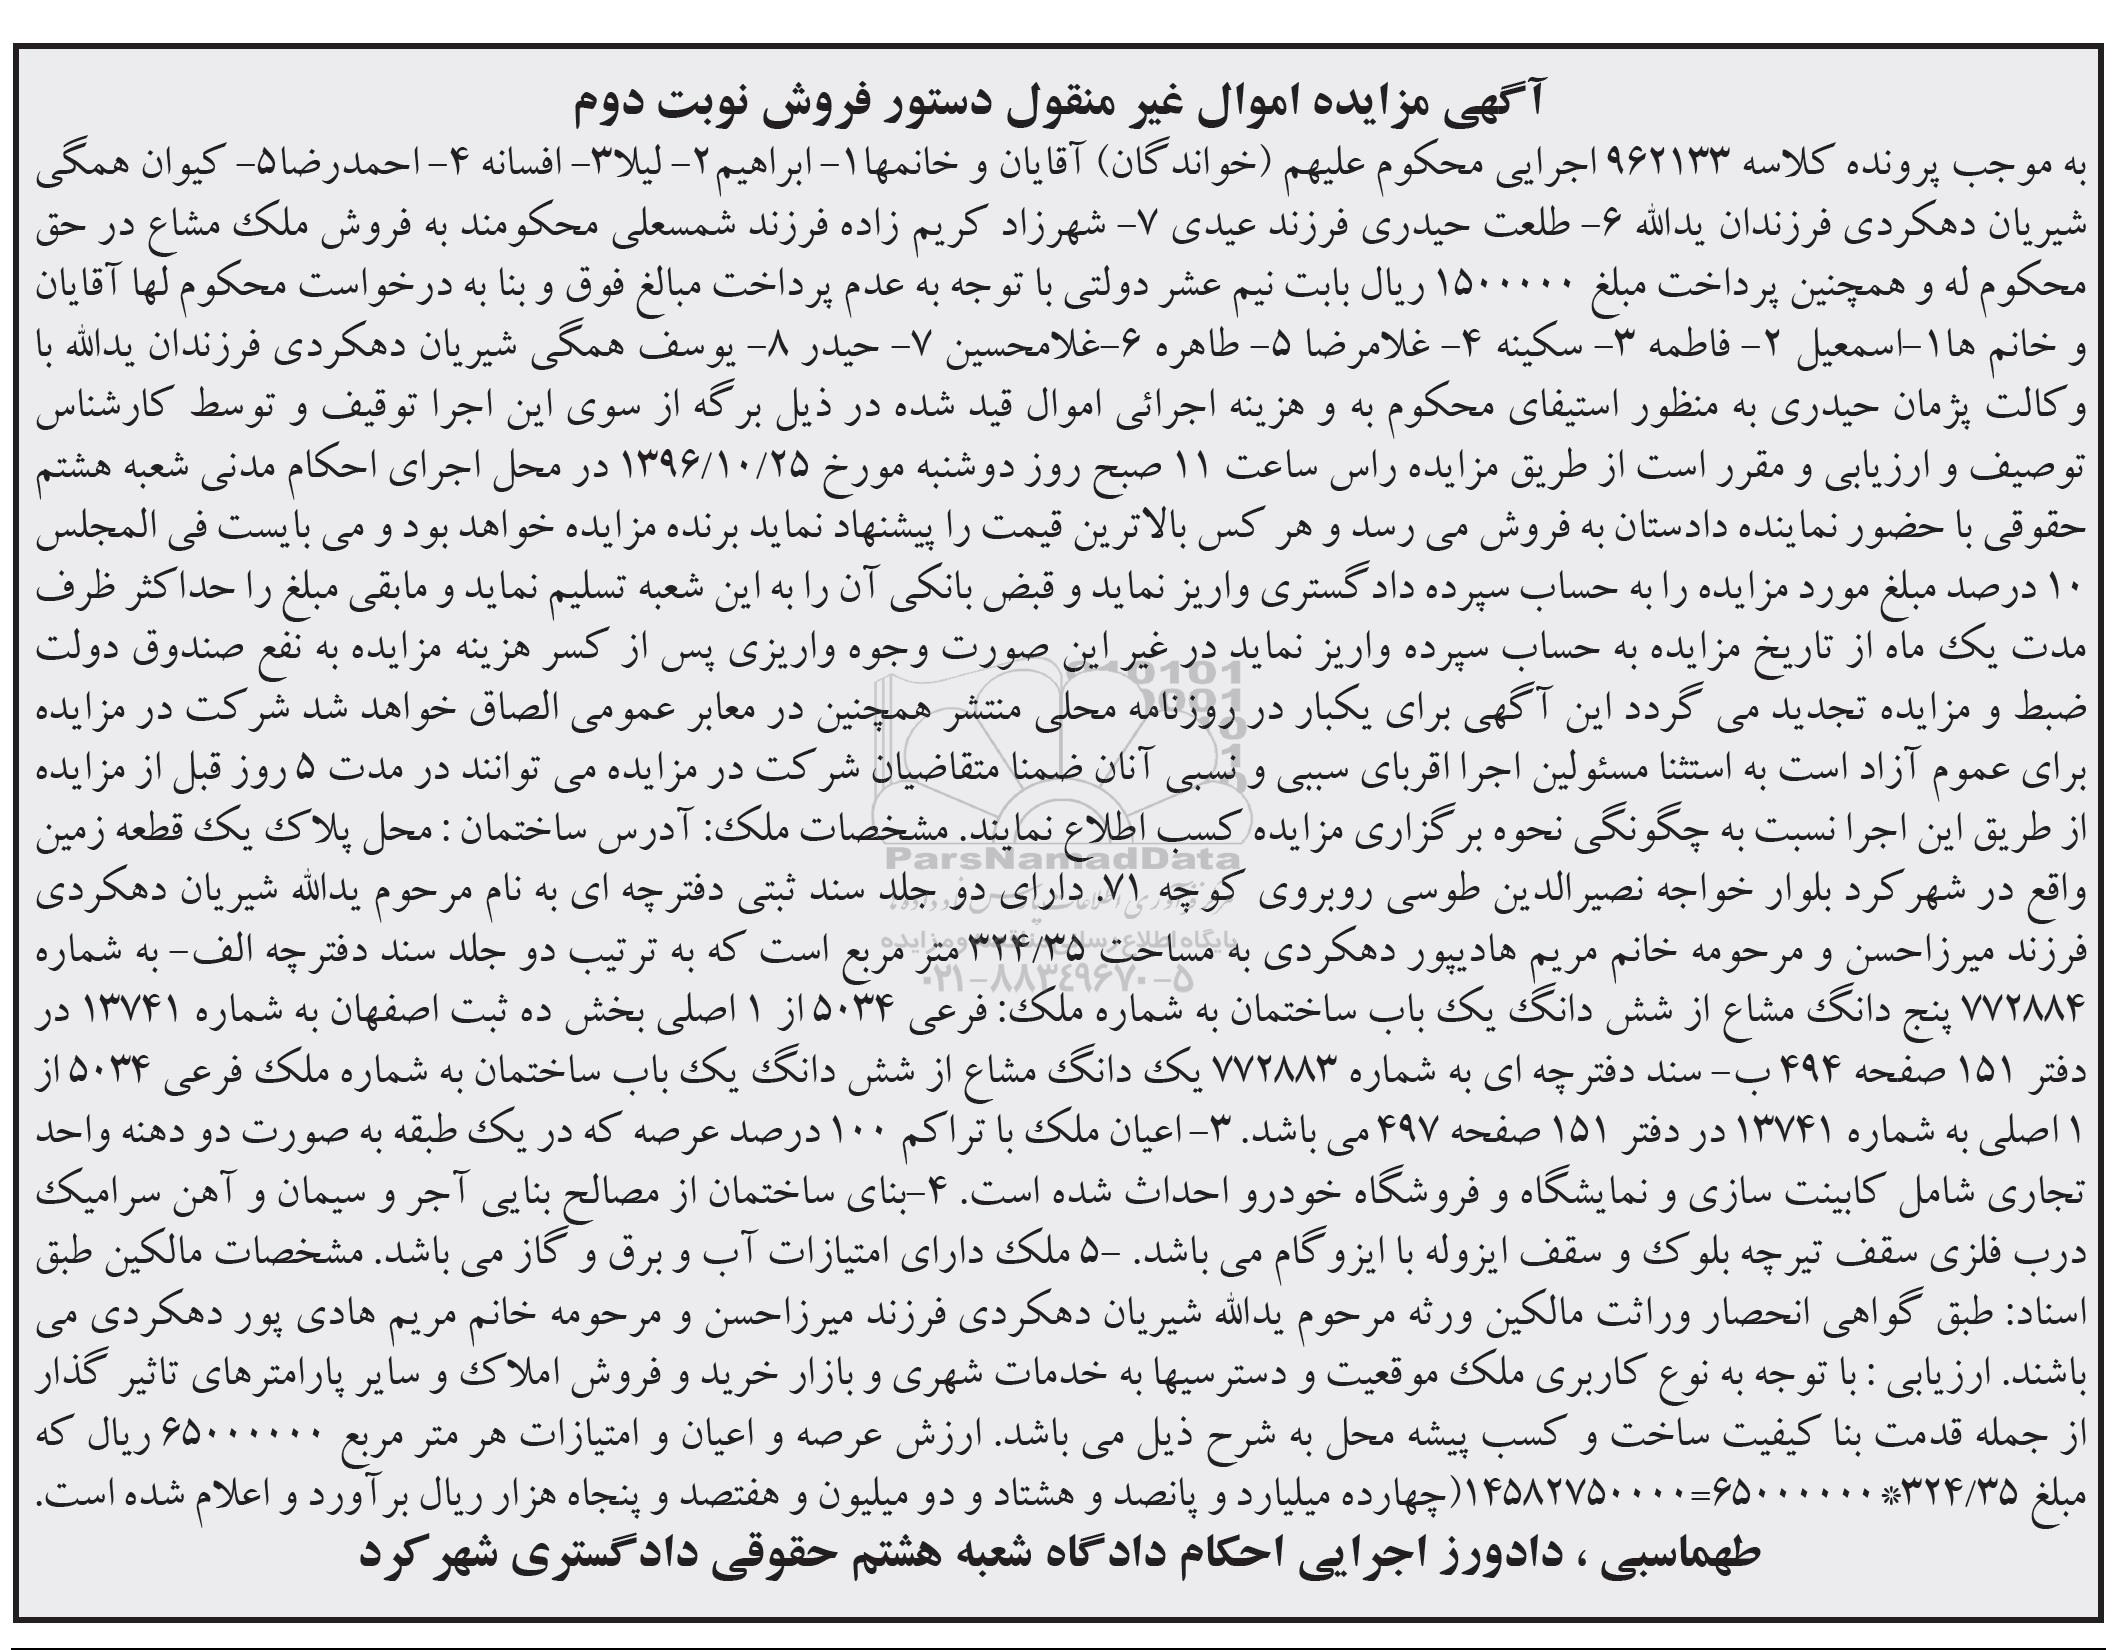 آگهی مزایده اموال غیر منقول دستور فروش نوبت دوم
به موجب پرونده کلاسه ۹۶۲۱۳۳ اجرایی محکوم علیهم (خواندگان) آقایان و خانمها۱- ابراهیم۲- لیلا۳- افسانه ۴- احمدرضا۵- کیوان همگی
شیریان دهکردی فرزندان یدالله ۶- طلعت حیدری فرزند عیدی ۷- شهرزاد کریم زاده فرزند شمسعلی محکومند به فروش ملک مشاع در حق
محکوم له و همچنین پرداخت مبلغ ۱۵۰۰۰۰۰ ریال بابت نیم عشر دولتی با توجه به عدم پرداخت مبالغ فوق و بنا به درخواست محکوم لها آقایان
و خانم ها۱-اسمعیل ۲- فاطمه ۳- سکینه ۴- غلامرضا ۵- طاهره ۶-غلامحسین ۷- حیدر ۸- یوسف همگی شیریان دهکردی فرزندان یدالله با
وکالت پژمان حیدری به منظور استیفای محکوم به و هزینه اجرائی اموال قید شده در ذیل برگه از سوی این اجرا توقیف و توسط کارشناس
توصیف و ارزیابی و مقرر است از طریق مزایده راس ساعت ۱۱ صبح روز دوشنبه مورخ ۱۳۹۶/۱۰/۲۵ در محل اجرای احکام مدنی شعبه هشتم
حقوقی با حضور نماینده دادستان به فروش می رسد و هر کس بالاترین قیمت را پیشنهاد نماید برنده مزایده خواهد بود و می بایست فی المجلس
۱۰ درصد مبلغ مورد مزایده را به حساب سپرده دادگستری واریز نماید و قبض بانکی آن را به این شعبه تسلیم نماید و مابقی مبلغ را حداکثر ظرف
مدت یک ماه از تاریخ مزایده به حساب سپرده واریز نماید در غیر این صورت وجوه واریزی پس از کسر هزینه مزایده به نفع صندوق دولت
ضبط و مزایده تجدید می گردد این آگهی برای یکبار در روزنامه محلی منتشر همچنین در معابر عمومی الصاق خواهد شد شرکت در مزایده
برای عموم آزاد است به استثنا مسئولین اجرا اقربای سببی و نسبی آنان ضمنا متقاضیان شرکت در مزایده می توانند در مدت ۵ روز قبل از مزایده
از طریق این اجرا نسبت به چگونگی نحوه برگزاری مزایده کسب اطلاع نمایند. مشخصات ملک: آدرس ساختمان : محل پلاک یک قطعه زمین
ParsNamadData
واقع در شهرکرد بلوار خواجه نصیرالدین طوسی روبروی کوچه ۷۱. دارای دو جلد سند ثبتی دفترچه ای به نام مرحوم یدالله شیریان دهکردی
فرزند میرزاحسن و مرحومه خانم مریم هادیپور دهکردی به مساحت ۳۲۴/۳۵ متر مربع است که به ترتیب دو جلد سند دفترچه الف- به شماره
پایگاه اطلاع رسانی مناقصه و مزایده
۰۲۱-۸۸۳۴۹۶۷۰-۵
۷۷۲۸۸۴ پنج دانگ مشاع از شش دانگ یک باب ساختمان به شماره ملک: فرعی ۵۰۳۴ از ۱ اصلی بخش ده ثبت اصفهان به شماره ۱۳۷۴۱ در
دفتر ۱۵۱ صفحه ۴۹۴ ب- سند دفترچه ای به شماره ۷۷۲۸۸۳ یک دانگ مشاع از شش دانگ یک باب ساختمان به شماره ملک فرعی ۵۰۳۴ از
۱ اصلی به شماره ۱۳۷۴۱ در دفتر ۱۵۱ صفحه ۴۹۷ می باشد. ۳- اعیان ملک با تراکم ۱۰۰ درصد عرصه که در یک طبقه به صورت دو دهنه واحد
تجاری شامل کابینت سازی و نمایشگاه و فروشگاه خودرو احداث شده است. ۴-بنای ساختمان از مصالح بنایی آجر و سیمان و آهن سرامیک
درب فلزی سقف تیرچه بلوک و سقف ایزوله با ایزوگام می باشد. -۵ ملک دارای امتیازات آب و برق و گاز می باشد. مشخصات مالکین طبق
اسناد: طبق گواهی انحصار وراثت مالکین ورثه مرحوم یدالله شیریان دهکردی فرزند میرزاحسن و مرحومه خانم مریم هادی پور دهکردی می
باشند. ارزیابی : با توجه به نوع کاربری ملک موقعیت و دسترسیها به خدمات شهری و بازار خرید و فروش املاک و سایر پارامترهای تاثیر گذار
از جمله قدمت بنا کیفیت ساخت و کسب پیشه محل به شرح ذیل می باشد. ارزش عرصه و اعیان و امتیازات هر متر مربع ۶۵۰۰۰۰۰۰ ریال که
مبلغ ۳۲۴/۳۵*۶۵۰۰۰۰۰۰=۱۴۵۸۲۷۵۰۰۰۰(چهارده میلیارد و پانصد و هشتاد و دو میلیون و هفتصد و پنجاه هزار ریال برآورد و اعلام شده است.
طهماسبی ، دادورز اجرایی احکام دادگاه شعبه هشتم حقوقی دادگستری شهرکرد